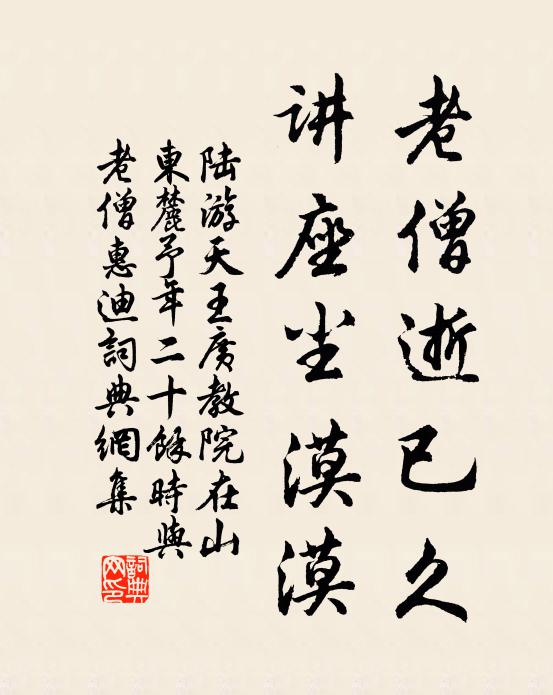 老僧逝已久
讲座尘漠漠
陆游天王廣教院在山
東麓予年二十餘時與
老僧惠迪詞典網集
詞典
网印